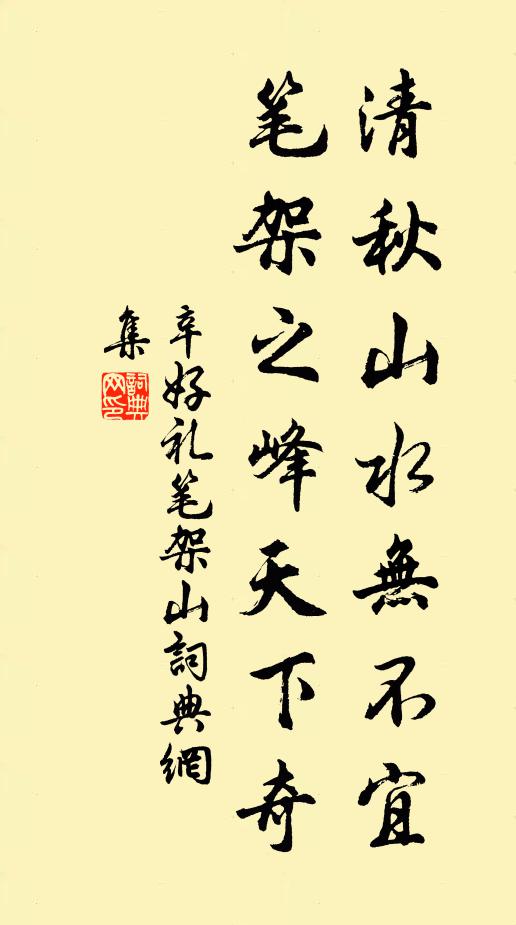 清秋山水無不宜
笔架之峰天下奇
辛好礼笔架山詞典網
集
詞典
网印